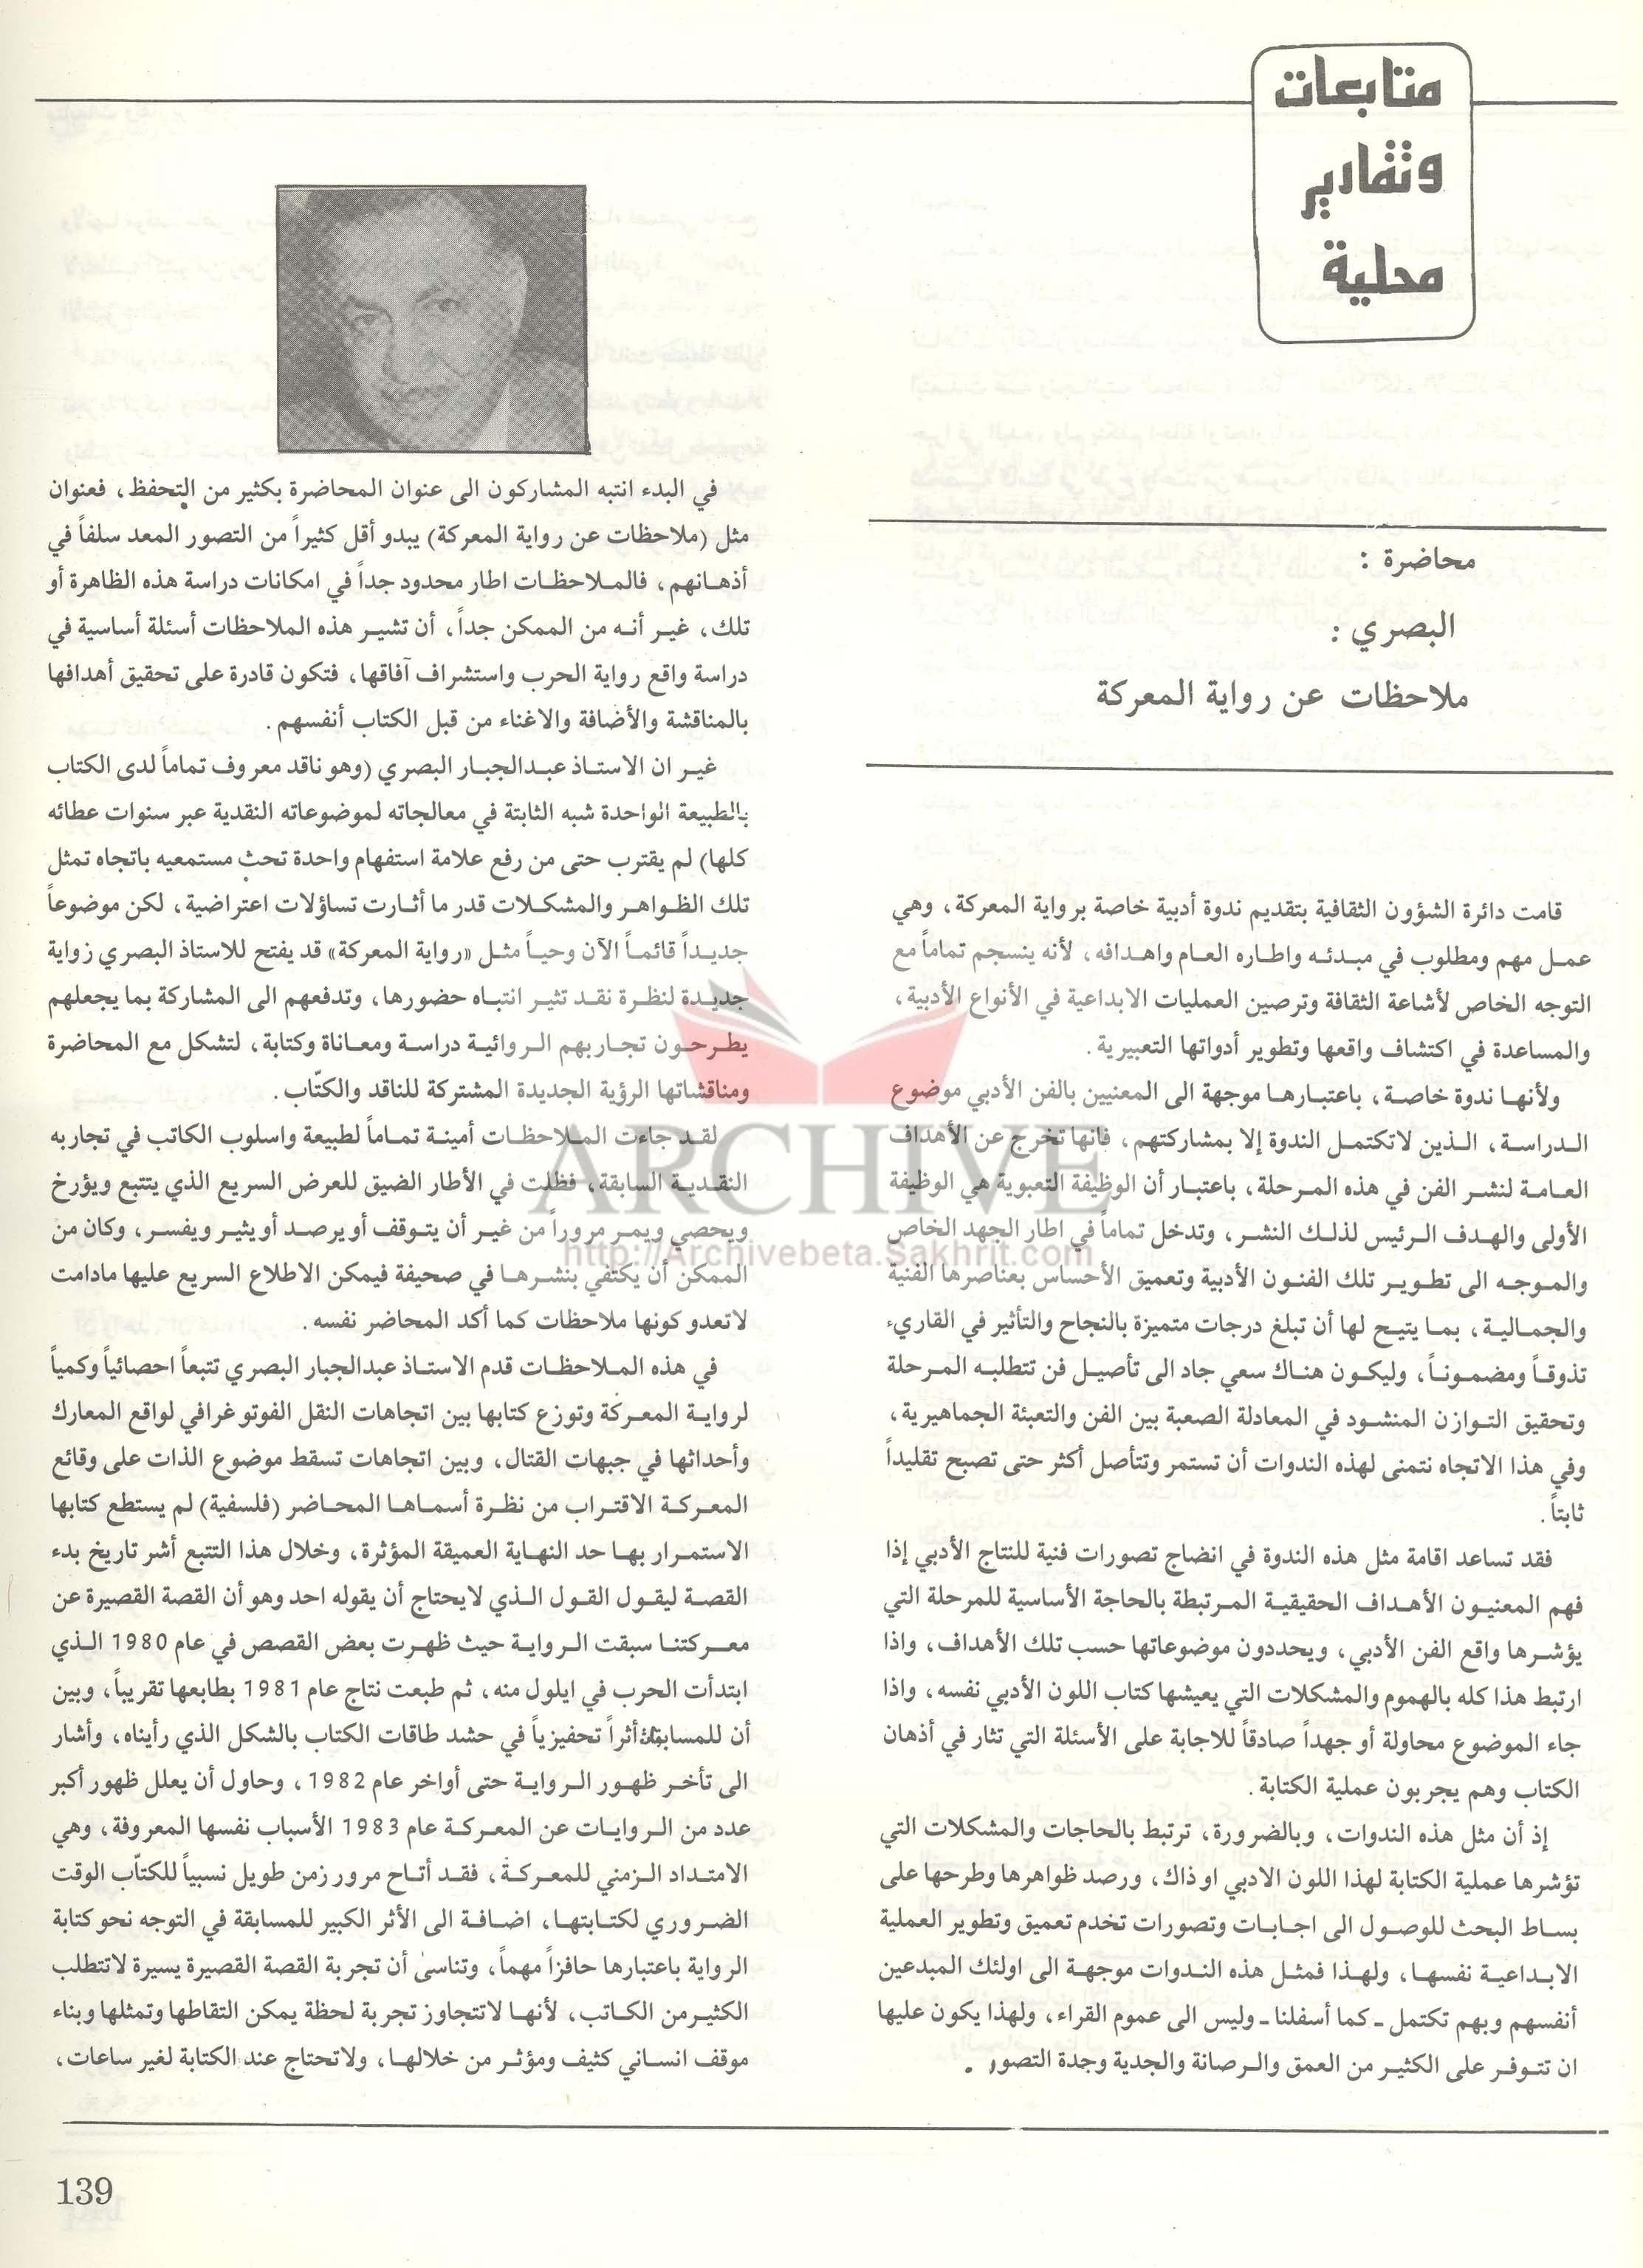 متابعات
وتقارير
محلية
محاضرة :
البصري :
ملاحظات عن رواية المعركة
قامت دائرة الشؤون الثقافية بتقديم ندوة أدبية خاصة برواية المعركة، وهي
عمـل مهم ومطلوب في مبـدئـه واطـاره العـام واهـدافه، لأنه ينسجم تماماً مع
التوجه الخاص لأشاعة الثقافة وترصين العمليات الابداعية في الأنواع الأدبية،
والمساعدة في اكتشاف واقعها وتطوير أدواتها التعبيرية.
ولأنهـا ندوة خاصـة، باعتبـارهـا موجهة الى المعنيين بالفن الأدبي موضوع
الـدراسـة، الـذين لاتكتمـل الندوة إلا بمشاركتهم، فانها تخرج عن الأهداف
العامـة لنشـر الفن في هذه المـرحلة، باعتبـار أن الوظيفة التعبوية هي الوظيفة
الأولى والهـدف الـرئيس لذلـك النشـر، وتدخل تماماً في اطار الجهد الخاص
والمـوجـه الى تطـويـر تلك الفنـون الأدبية وتعميق الأحساس بعناصرها الفنية
والجمـاليـة، بمـا يتيـح لها أن تبلغ درجات متميزة بالنجاح والتأثير في القاريء
تذوقـاً ومضمـونـاً، وليكـون هنـاك سعي جاد الى تأصيـل فن تتطلبـه المـرحلة
وتحقيق التـوازن المنشـود في المعادلة الصعبة بين الفن والتعبئة الجماهيرية،
وفي هذا الاتجاه نتمنى لهذه الندوات أن تستمر وتتأصل أكثر حتى تصبح تقليداً
ثابتاً.
فقد تساعد اقامة مثل هذه الندوة في انضاج تصورات فنية للنتاج الأدبي إذا
فهم المعنيـون الأهـداف الحقيقيـة المـرتبطة بالحاجة الأساسية للمرحلة التي
يؤشـرها واقع الفن الأدبي، ويحددون موضوعاتها حسب تلك الأهداف، واذا
ارتبط هذا كله بالهموم والمشكلات التي يعيشها كتاب اللون الأدبي نفسه، واذا
جاء الموضوع محاولة أو جهداً صادقاً للاجابة على الأسئلة التي تثار في أذهان
الكتاب وهم يجربون عملية الكتابة.
إذ أن مثل هذه الندوات، وبالضرورة، ترتبط بالحاجات والمشكلات التي
تؤشرها عملية الكتابة لهذا اللون الادبي اوذاك، ورصد ظواهرها وطرحها على
بسـاط البحث للوصـول الى اجـابـات وتصورات تخدم تعميق وتطوير العملية
الابـداعيـة نفسهـا، ولهـذا فمثـل هذه النـدوات موجهـة الى اولئك المبدعين
أنفسهم وبهم تكتمل ـ كما أسفلنا ـ وليس الى عموم القراء، ولهذا يكون عليها
ان تتـوفـر على الكثيـر من العمق والـرصانة والجدية وجدة التصور.
في البدء انتبه المشاركون الى عنوان المحاضرة بكثير من التحفظ، فعنوان
مثل (ملاحظات عن رواية المعركة) يبدو أقل كثيراً من التصور المعد سلفاً في
أذهـانهم، فالمـلاحظـات اطار محدود جداً في امكانات دراسة هذه الظاهرة أو
تلك، غيـر أنـه من الممكن جداً، أن تشيـر هذه الملاحظات أسئلة أساسية في
دراسة واقع رواية الحرب واستشراف آفاقها، فتكون قادرة على تحقيق أهدافها
بالمناقشة والأضافة والاغناء من قبل الكتاب أنفسهم.
غيـر ان الاستـاذ عبـدالجبار البصري (وهو ناقد معروف تماماً لدى الكتاب
بالطبيعة الواحدة شبه الثابتة في معالجاته لموضوعاته النقدية عبر سنوات عطائه
كلها) لم يقترب حتى من رفع علامة استفهام واحدة تحث مستمعيه باتجاه تمثل
تلك الظـواهـر والمشكـلات قدر ما أثـارت تساؤلات اعتراضية، لكن موضوعاً
جديـداً قائمـاً الآن وحيـاً مثـل «رواية المعركة» قد يفتح للاستاذ البصري زواية
جديـدة لنظـرة نقـد تثيـر انتبـاه حضورها، وتدفعهم الى المشاركة بما يجعلهم
يطـرحـون تجـاربهم الـروائيـة دراسـة ومعـاناة وكتابة، لتشكل مع المحاضرة
ومناقشاتها الرؤية الجديدة المشتركة للناقد والكتّاب.
لقـد جاءت المـلاحظـات أمينـة تمـاماً لطبيعة واسلوب الكاتب في تجاربه
النقـديـة السابقة، فظلت في الأطار الضيق للعرض السريع الذي يتتبع ويؤرخ
ويحصي ويمـر مروراً من غيـر أن يتـوقف أو يرصـد أو يثيـر ويفسر، وكان من
الممكن أن يكتفي بنشـرهـا في صحيفة فيمكن الاطلاع السريع عليها مادامت
لاتعدو كونها ملاحظات كما أكد المحاضر نفسه.
في هذه المـلاحظـات قدم الاستـاذ عبدالجبار البصري تتبعاً احصائياً وكمياً
لروايـة المعـركة وتوزع كتابها بين اتجاهات النقل الفوتوغرافي لواقع المعارك
وأحداثها في جبهات القتال، وبين اتجاهات تسقط موضوع الذات على وقائع
المعـركـة الاقتراب من نظرة أسمـاهـا المحـاضر (فلسفية) لم يستطع كتابها
الاستمـرار بهـا حد النهـاية العميقة المؤثرة، وخلال هذا التتبع أشر تاريخ بدء
القصـة ليقـول القـول الـذي لايحتاج أن يقوله احد وهو أن القصة القصيرة عن
معـركتنـا سبقت الـروايـة حيث ظهـرت بعض القصص في عام 1980 الـذي
ابتدأت الحرب في ايلول منه، ثم طبعت نتاج عام 1981 بطابعها تقريباً، وبين
أن للمسابقة أثراً تحفيزياً في حشد طاقات الكتاب بالشكل الذي رأيناه، وأشار
الى تأخـر ظهـور الـروايـة حتى أواخر عام 1982، وحاول أن يعلل ظهور أكبر
عدد من الـروايـات عن المعـركـة عام 1983 الأسباب نفسها المعروفة، وهي
الامتـداد الـزمني للمعـركـة، فقـد أتـاح مرور زمن طويل نسبياً للكتّاب الوقت
الضـروري لكتـابتهـا، اضـافـة الى الأثر الكبير للمسابقة في التوجه نحو كتابة
الرواية باعتبارها حافزاً مهماً، وتناسى أن تجربة القصة القصيرة يسيرة لاتتطلب
الكثيـر من الكـاتب، لأنهـا لاتتجاوز تجربة لحظة يمكن التقاطها وتمثلها وبناء
موقف انسـاني كثيف ومؤثـر من خلالهـا، ولاتحتاج عند الكتابة لغير ساعات،
ARCHIVE
http://Archivebeta.Sakhrit.com
139